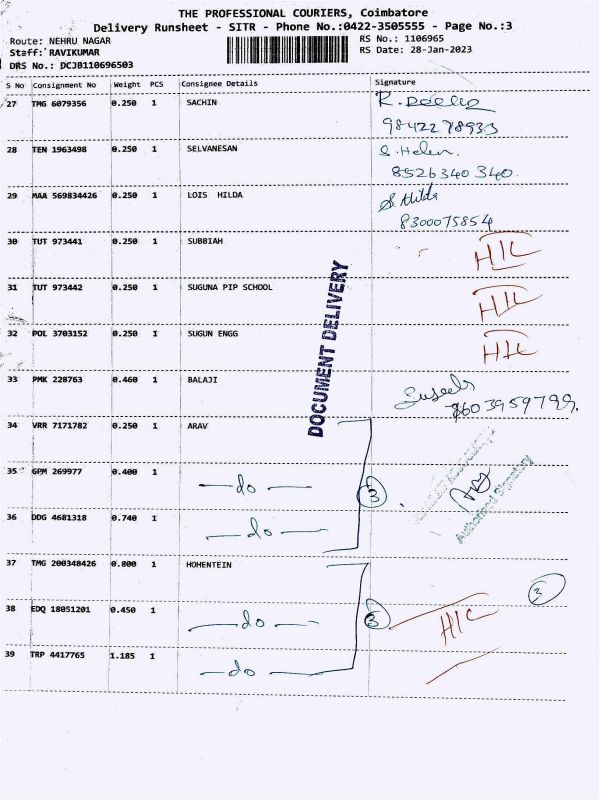 THE PROFESSIONAL COURIERS, Coimbatore
Delivery Runsheet - SITR - Phone No.:0422-3505555 - Page No.:3
Route: NEHRU NAGAR
RS No.: 1106965
Staff: RAVIKUMAR
RS Date: 28-Jan-2023
DRS No.: DCJB110696503
S No Consignment No Weight PCS Consignee Details Signature
27 TMG 6079356 0.250 1 SACHIN
28 TEN 1963498 0.250 1 SELVANESAN S. Helen.
8526340340.
29 MAA 569834426 0.250 1 LOIS HILDA S. Hilda
8300075854
30 TUT 973441 0.250 1 SUBBIAH HIL
31 TUT 973442 0.250 1 SUGUNA PIP SCHOOL HIL
32 POL 3703152 0.250 1 SUGUN ENGG HIL
DOCUMENT DELIVERY
33 PMK 228763 0.460 1 BALAJI
8603959799.
34 VRR 7171782 0.250 1 ARAV
35 GPM 269977 0.400 1 -do- 3
Authorised Signatory
36 DDG 4681318 0.740 1 -do-
37 TMG 200348426 0.800 1 HOHENTEIN 3
38 EDQ 18051201 0.450 1 -do- 3 HIL
39 TRP 4417765 1.185 1 -do-